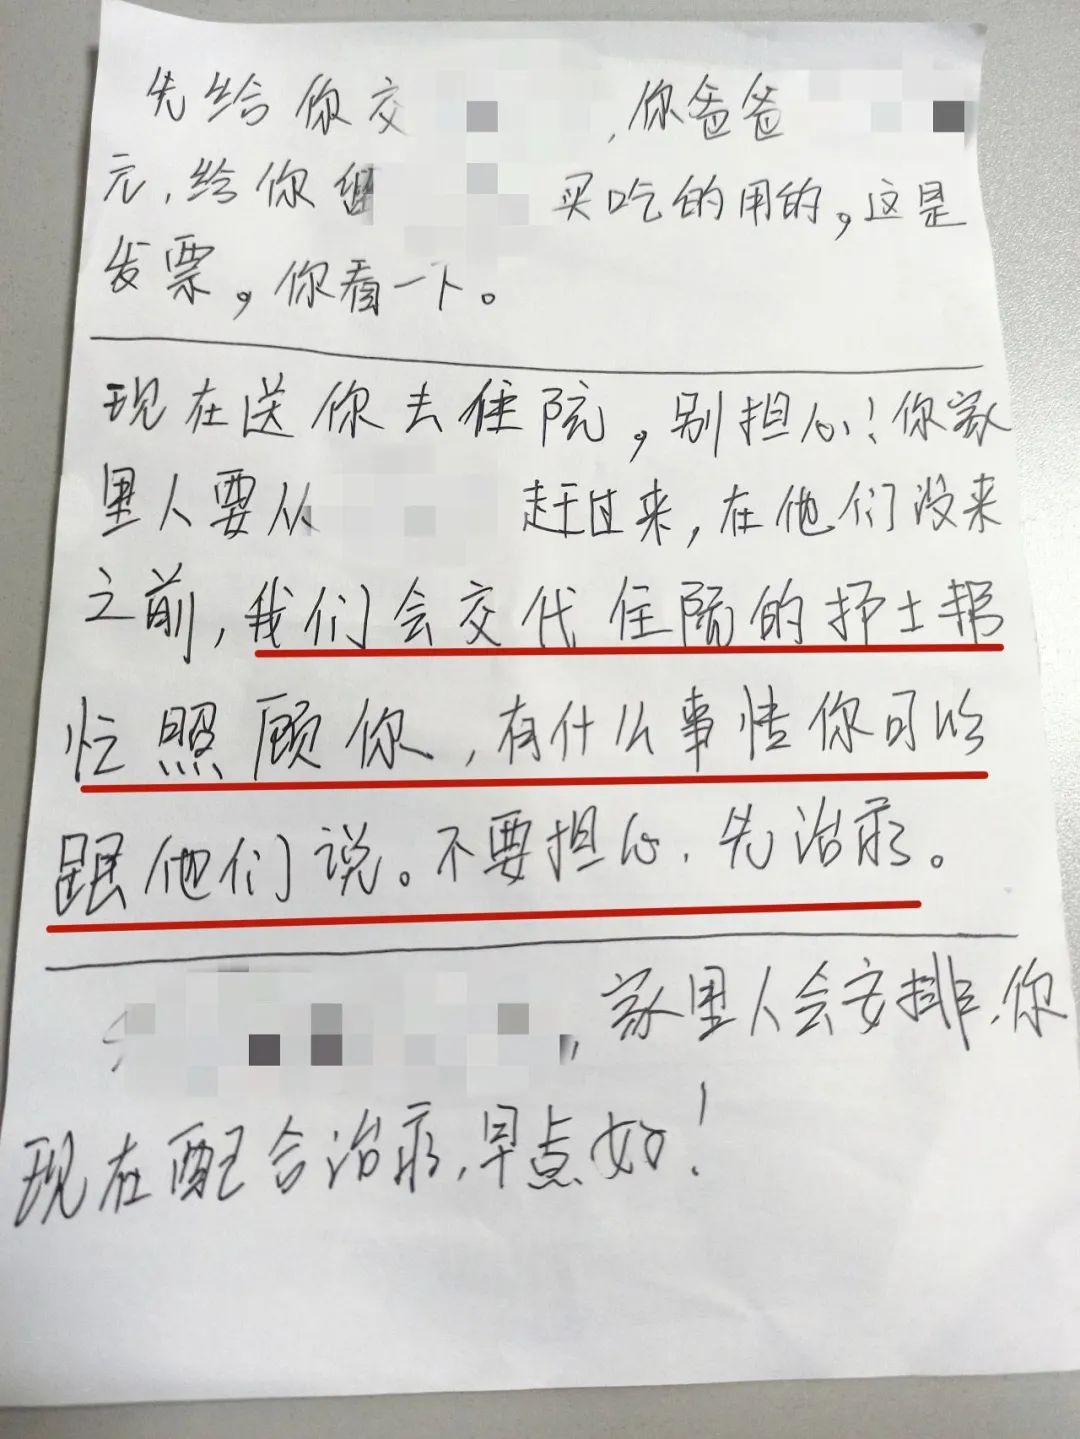 先给你交
,你爸爸
元,给你
买吃的用的,这是
发票,你看一下。
现在送你去住院,别担心!你家
里人要从
赶过来,在他们没来
之前,我们会交代住院的护士帮
忙照顾你,有什么事情你可以
跟他们说。不要担心,先治疗。
,家里人会安排,你
现在配合治疗,早点好!